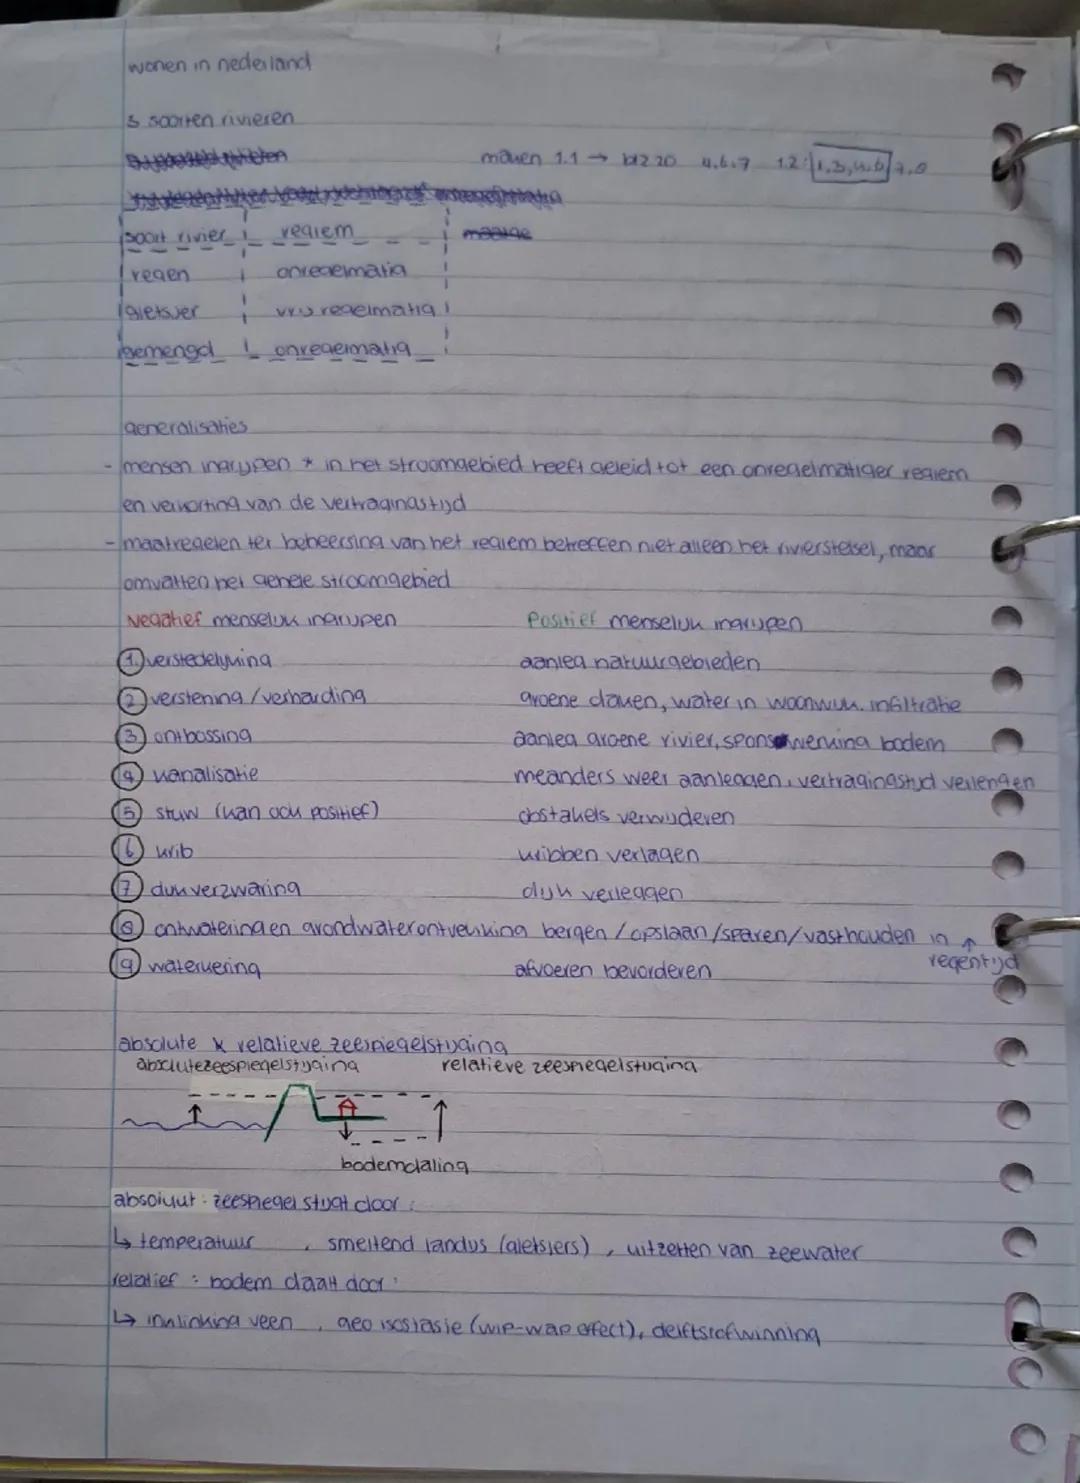 wonen in nederland
3 soorten rivieren
maken 1.1 → blz 20 4,6,7 1.2: 1,3,4,6, 7,8
soort rivier regiem
regen onregelmatig
gletsjer vrij regelmatig
gemengd onregelmatig
generalisaties
- mensen ingrijpen * in het stroomgebied heeft geleid tot een onregelmatiger regiem
en verkorting van de vertragingstijd
- maatregelen ter beheersing van het regiem betreffen niet alleen het rivierstelsel, maar
omvatten het gehele stroomgebied
Negatief menselijk ingrijpen Positief menselijk ingrijpen
1. verstedelijking aanleg natuurgebieden
2 verstening / verharding groene daken, water in woonwijk, infiltratie
3 ontbossing aanleg groene rivier, sponswerking bodem
4 kanalisatie meanders weer aanleggen, vertragingstijd verlengen
5 stuw (kan ook positief) obstakels verwijderen
6 krib kribben verlagen
7 dijkverzwaring dijk verleggen
8 ontwatering en grondwateronttrekking bergen / opslaan / sparen / vasthouden in ↑
regentijd
9 waterkering afvoeren bevorderen
absolute & relatieve zeespiegelstijging
absolutezeespiegelstijging relatieve zeespiegelstijging
bodemdaling
absoluut: zeespiegel stijgt door:
↳ temperatuur, smeltend landijs (gletsjers), uitzetten van zeewater
relatief: bodem daalt door:
↳ inklinking veen, geo isostasie (wip-wap effect), delfstofwinning